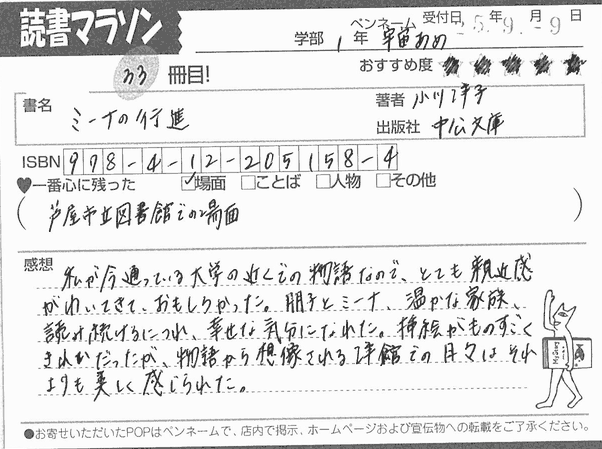 読書マラソン
学部 1年 ペンネーム 宇宙あめ 受付日 25年9月-9日
33冊目!
おすすめ度
書名 ミーナの行進
著者 小川洋子
出版社 中公文庫
ISBN 978-4-12-205158-4
♥一番心に残った ☑場面 □ことば □人物 □その他
(芦屋市立図書館での場面)
感想
私が今通っている大学の近くでの物語なので、とても親近感
がわいてきて、おもしろかった。朋子とミーナ、温かな家族、
読み続けるにつれ、幸せな気分になれた。挿絵がものすごく
きれいだったが、物語から想像される洋館での日々はそれ
よりも美しく感じられた。
●お寄せいただいたPOPはペンネームで、店内で掲示、ホームページおよび宣伝物への転載をご了承ください。